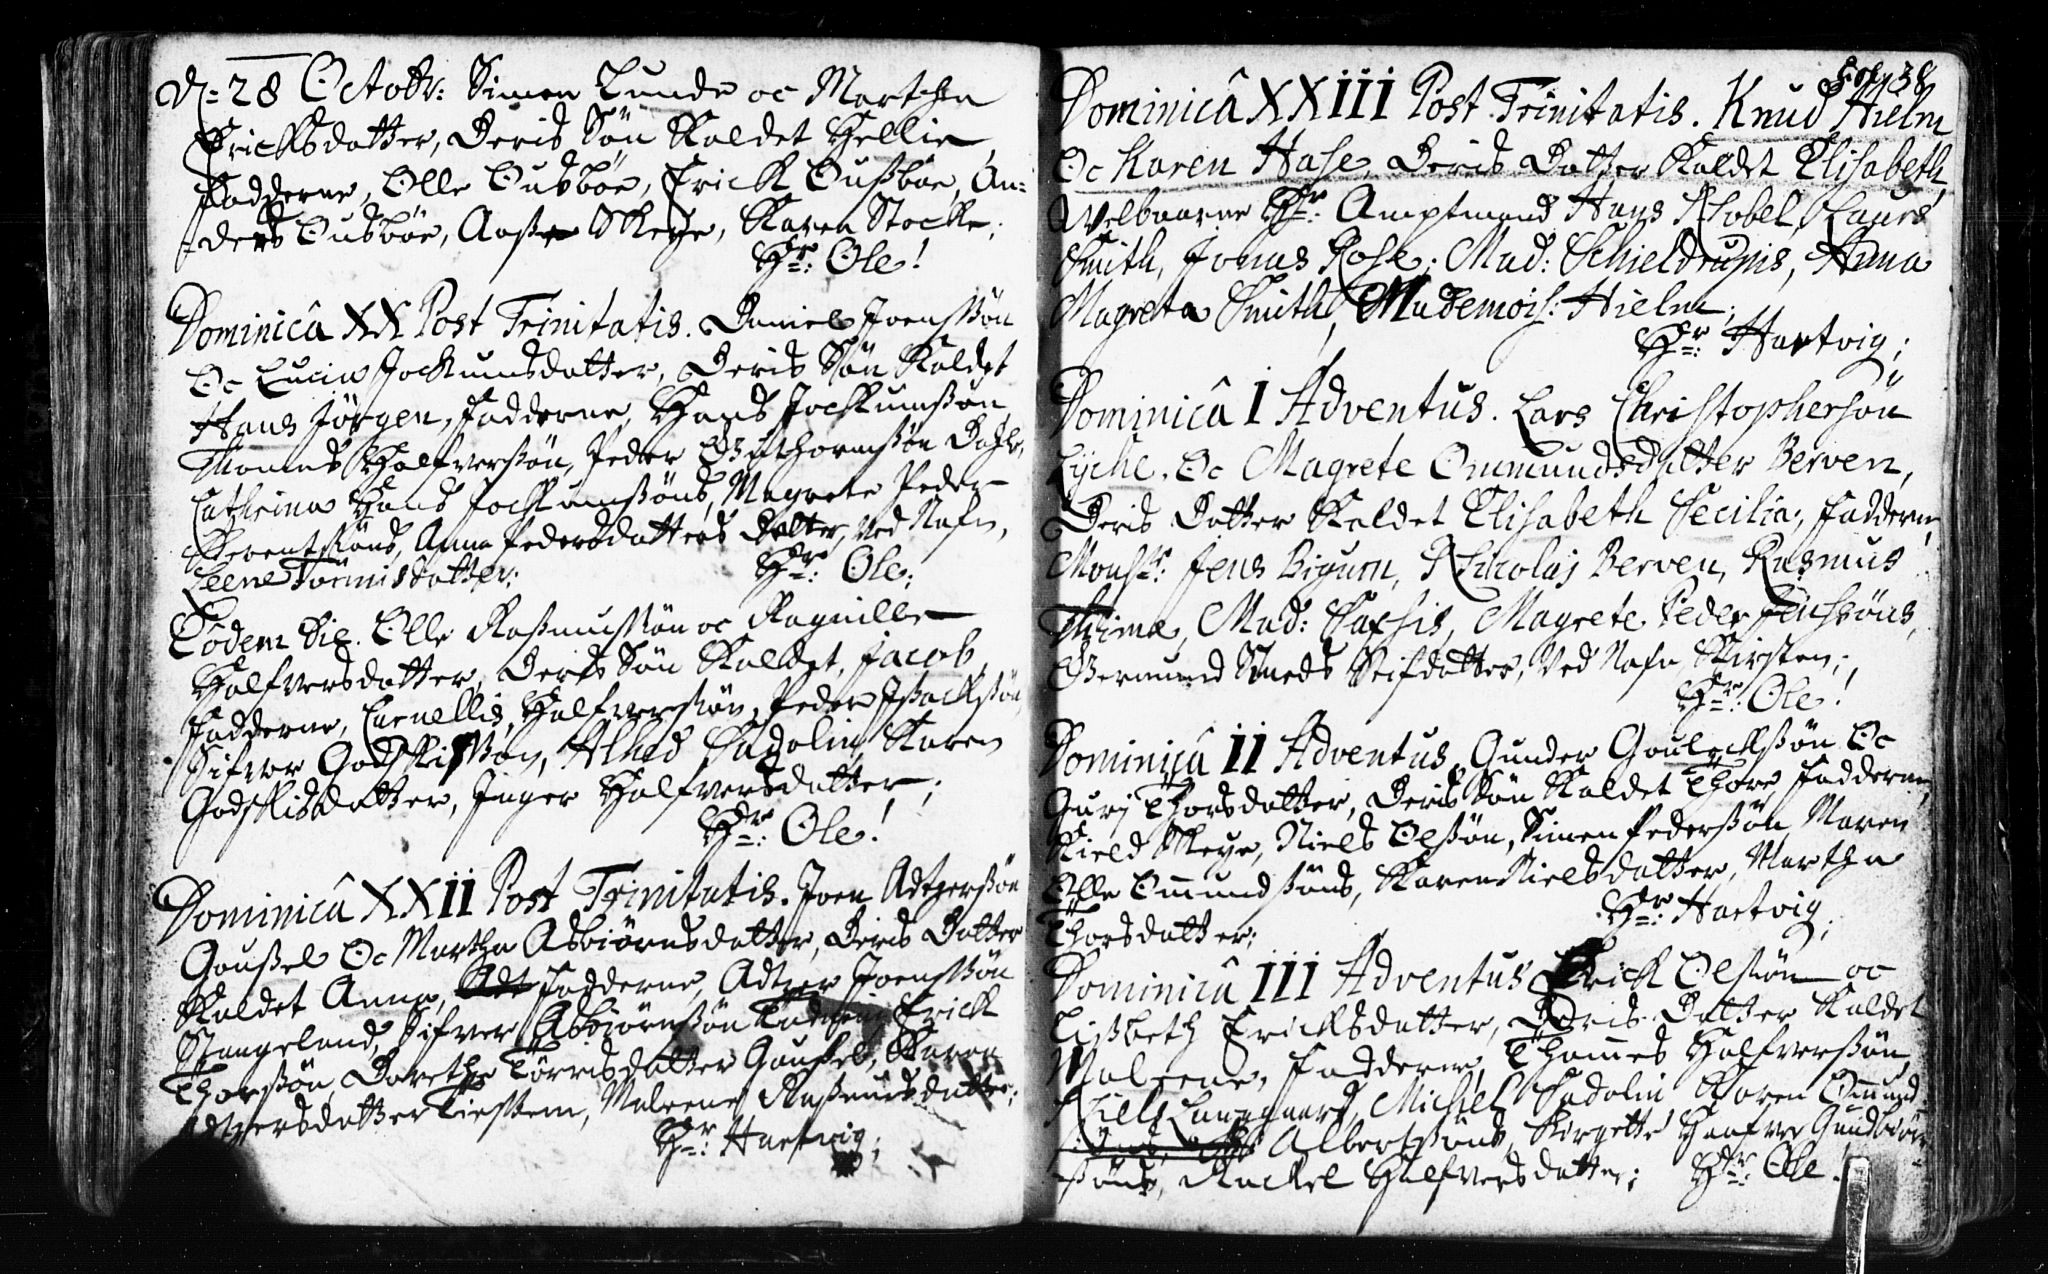 D: 28 Octobr: Simen Lunde oc Martha
Ericksdatter, Deris Søn Kaldet Hellie,
Fadderne, Olle Ousbøe, Erick Oußbøe, An-
ders Ousbøe, Aaße Skeye, Karen Stocke;
Hr: Ole!
Dominicâ XX Post Trinitatis. Daniel Joensßøn
Oc Lucia Jochumsdatter, Deris Søn Kaldet
Hans Jørgen, Fadderne, Hans Jochumsøn,
Thomas Halfverßøn, Peder
Cathrina Hans Jochumßøns, Magrete Peder
Berentßøns, Anna Pedersdatters Datter, Ved Nafn,
Leene Tørrisdatter;
Hr: Ole;
Eodem Die. Olle Raßmusßøn oc Ragnille
Halfversdatter, Deris Søn Kaldet, Jacob,
Fadderne, Carnellis Halfverßøn, Peder Jßackßøn,
Sifver Godskisßøn, Alhed Sadolin, Karen
Godskisdatter, Inger Halfversdatter;
Hr: Ole!
Dominicâ XXII Post Trinitatis. Joen Adtzerßøn
Gaußel Oc Martha Asbiørnsdatter, Deris Datter
Kaldet Anna, Fadderne, Adtzer Joensßøn
Stangeland, Sifver Asbiørnßøn Erick
Thorßøn, Dorethe Tørrisdatter Gaussel, Karen
Adtzersdatter Tiestem, Maleene Raßmusdatter;
Hr: Hartvig;
Fol: 38
Dominicâ XXIII Post Trinitatis. Knud Hielm
Oc Karen Hase, Deris Datter Kaldet Elisabeth,
Velbaarne Hr: Amptmand Hans Nobel, Laurs
Smith, Jonas Rose; Mad: Schieldrupis, Anna
Magreta Smith, Mademois: Hielm;
Hr: Hartvig;
Dominicâ I Adventus. Lars Christophersøn
Lyche. Oc Magrete Ommundsdatter Berven,
Deris Datter Kaldet Elisabeth Cecilia; Fadderne,
Monsr: Jens Bigum, Nicolaj Berven, Rasmus
Thime, Mad: Saxsis, Magrete Peder Jensøns,
Germund Smeds Seifdatter, Ved Nafn Kirsten;
Hr: Ole!
Dominicâ II Adventus, Gunder Gouleckßøn Oc
Gurj Thorsdatter, Deris Søn Kaldet Thore Fadderne,
Kield Skeye, Niels Olßøn, Simen Pederßøn, Maren
Olle Ommundßøns, Karen Nielsdatter, Martha
Thorsdatter;
Hr: Hartvig;
Dominicâ III Adventus Erick Olsøn oc
Lißbeth Ericksdatter, Deris Datter Kaldet
Maleene, Fadderne, Thomes Halfverßøn,
Niels Michel Sadolin Karen Ommund
Albertßøns, Birgette Haafver Gundbiørn-
ßøns, Rackel Halfversdatter; Hr: Ole!